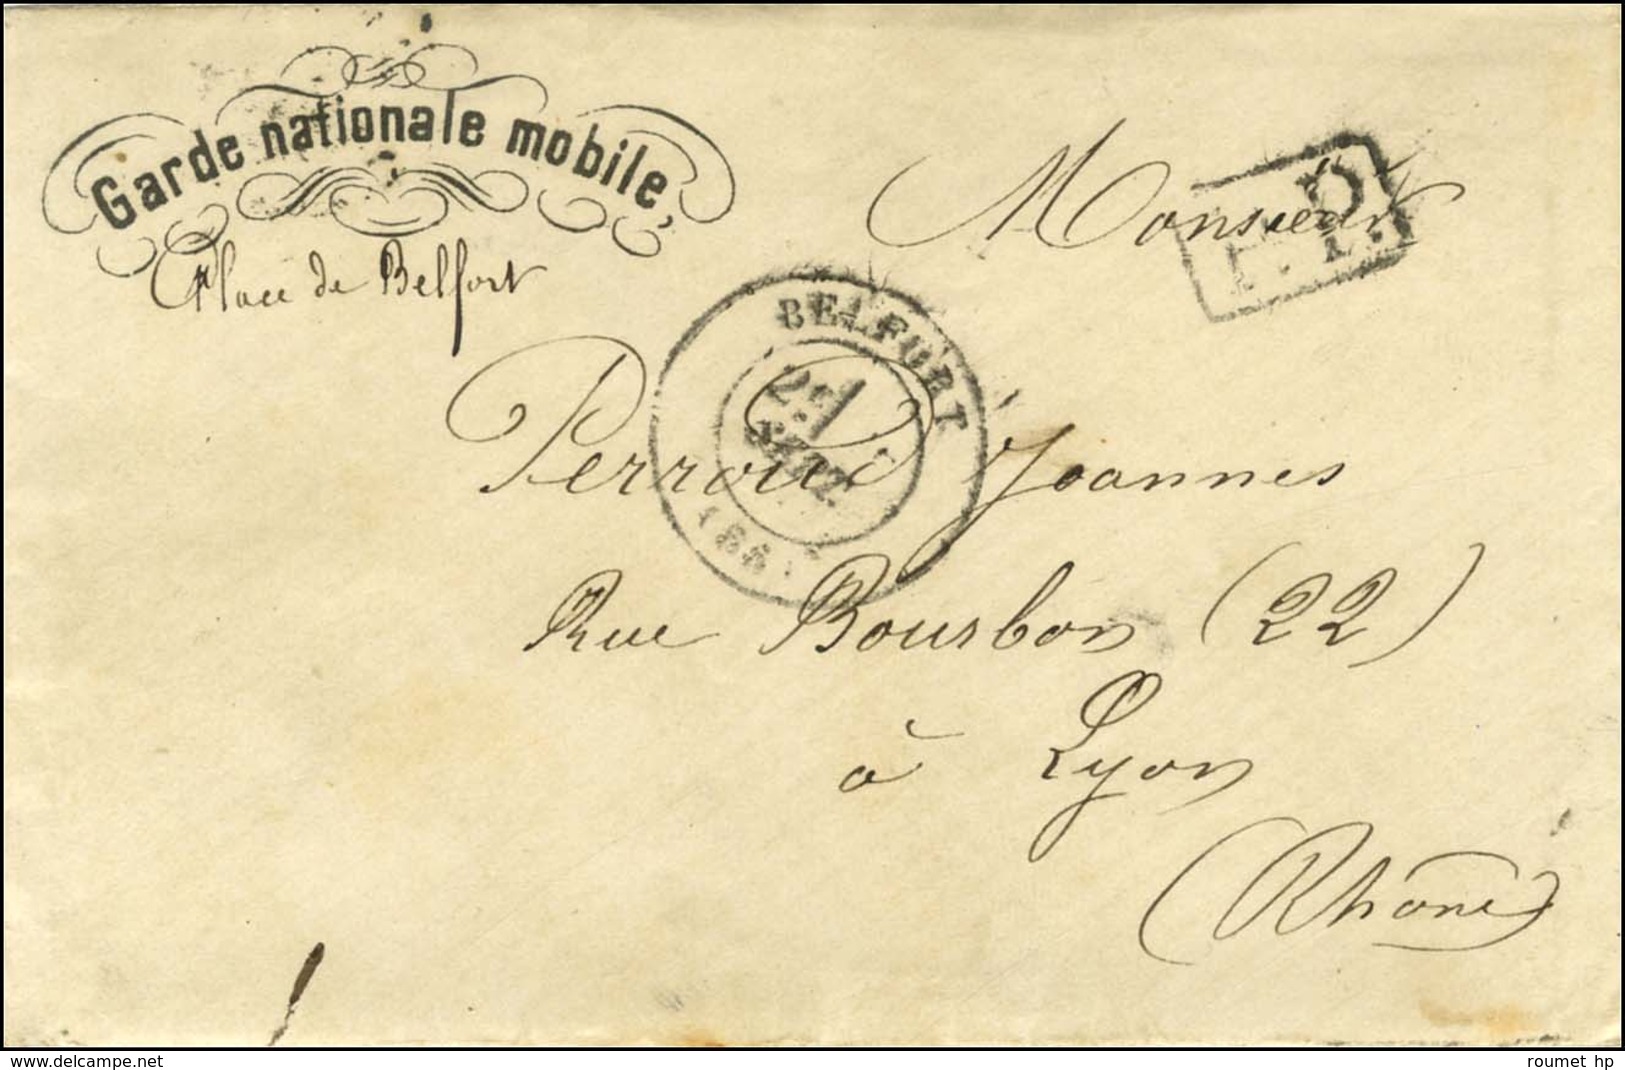 Garde nationale mobile,
Place de Belfort
Monsieur
P.P.
BELFORT
Perroud Joannes
Rue Bourbon (22)
à Lyon
(Rhône)
www.delcampe.net
roumet hp